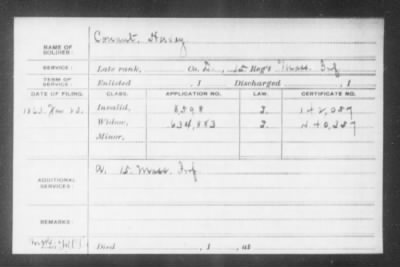 NAME OF SOLDIER: Conant, Hervey
SERVICE: Late rank, Co. D., 15 Reg't Mass. Inf
TERM OF SERVICE: Enlisted , 1 Discharged , 1
DATE OF FILING. CLASS. APPLICATION NO. LAW. CERTIFICATE NO.
1863, Nov. 23. Invalid, 142,087
Widow, 634,883
Minor,
ADDITIONAL SERVICES: 15 Mass. Inf
REMARKS:
Died , 1 , at